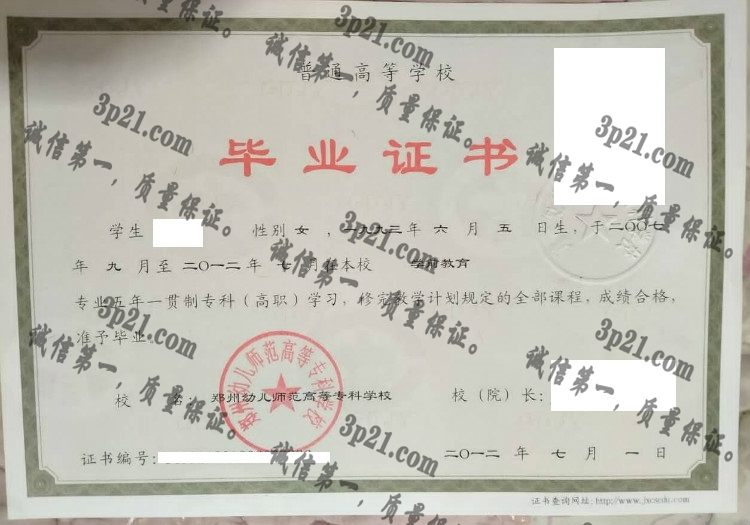 普通高等学校
毕业证书
学生 性别 女 ，一九九二年 六 月 五 日生，于二〇〇七
年 九 月至 二〇一二 年 七 月在本校 学前教育
专业五年一贯制专科（高职）学习，修完教学计划规定的全部课程，成绩合格，
准予毕业。
校 名：郑州幼儿师范高等专科学校
校（院）长：
郑州幼儿师范高等专科学校
证书编号：
二〇一二 年 七 月 一 日
证书查询网址：
3p21.com
诚信第一，质量保证。
3p21.com
诚信第一，质量保证。
3p21.com
诚信第一，质量保证。
3p21.com
诚信第一，质量保证。
3p21.com
诚信第一，质量保证。
3p21.com
诚信第一，质量保证。
3p21.com
诚信第一，质量保证。
3p21.com
诚信第一，质量保证。